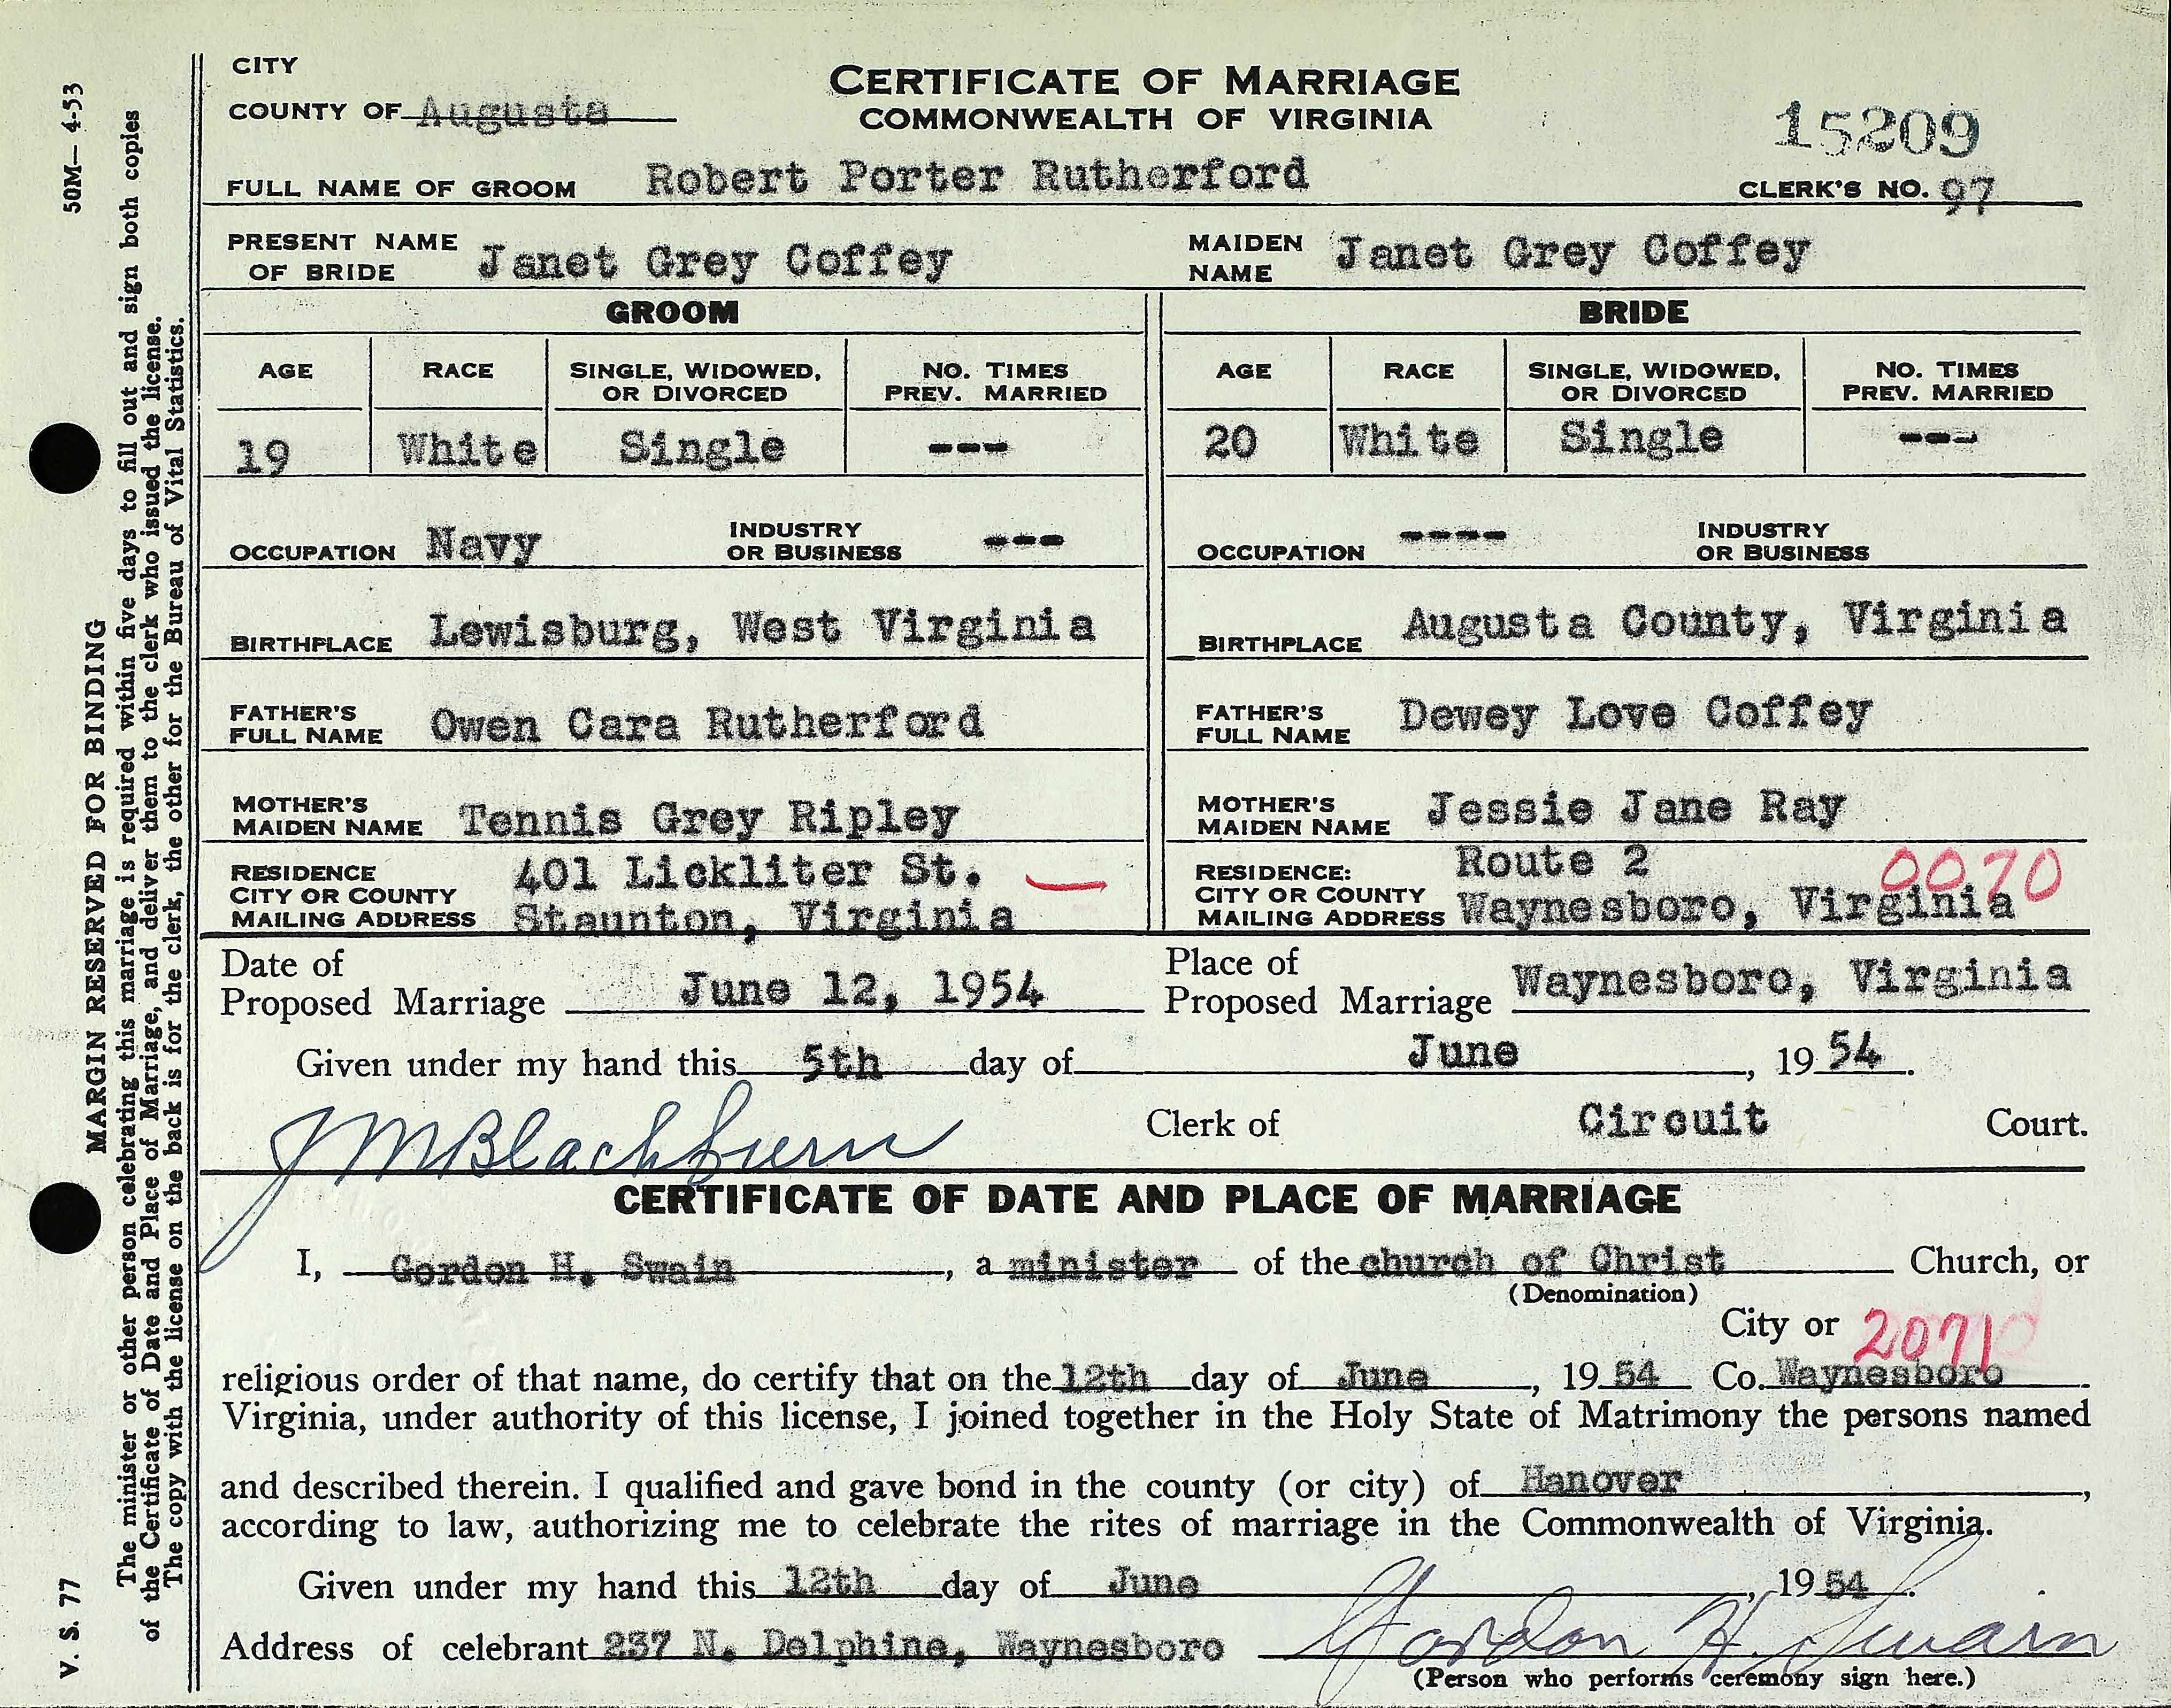 CITY
COUNTY OF Augusta
CERTIFICATE OF MARRIAGE
COMMONWEALTH OF VIRGINIA
15209
FULL NAME OF GROOM Robert Porter Rutherford
CLERK'S NO. 97
PRESENT NAME OF BRIDE Janet Grey Coffey
MAIDEN NAME Janet Grey Coffey
GROOM
BRIDE
AGE RACE SINGLE, WIDOWED, OR DIVORCED NO. TIMES PREV. MARRIED
AGE RACE SINGLE, WIDOWED, OR DIVORCED NO. TIMES PREV. MARRIED
19 White Single ---
20 White Single ---
OCCUPATION Navy INDUSTRY OR BUSINESS ---
OCCUPATION ---- INDUSTRY OR BUSINESS
BIRTHPLACE Lewisburg, West Virginia
BIRTHPLACE Augusta County, Virginia
FATHER'S FULL NAME Owen Cara Rutherford
FATHER'S FULL NAME Dewey Love Coffey
MOTHER'S MAIDEN NAME Tennis Grey Ripley
MOTHER'S MAIDEN NAME Jessie Jane Ray
RESIDENCE 401 Lickliter St.
CITY OR COUNTY
MAILING ADDRESS Staunton, Virginia
RESIDENCE: Route 2
CITY OR COUNTY 0070
MAILING ADDRESS Waynesboro, Virginia
Date of Proposed Marriage June 12, 1954
Place of Proposed Marriage Waynesboro, Virginia
Given under my hand this 5th day of June, 19 54.
J M Blackburn Clerk of Circuit Court.
CERTIFICATE OF DATE AND PLACE OF MARRIAGE
I, Gordon H. Swain, a minister of the church of Christ Church, or
(Denomination)
City or 2071
religious order of that name, do certify that on the 12th day of June, 19 54 Co. Waynesboro
Virginia, under authority of this license, I joined together in the Holy State of Matrimony the persons named
and described therein. I qualified and gave bond in the county (or city) of Hanover,
according to law, authorizing me to celebrate the rites of marriage in the Commonwealth of Virginia.
Given under my hand this 12th day of June, 19 54.
Address of celebrant 237 N. Delphine, Waynesboro Gordon H. Swain
(Person who performs ceremony sign here.)
V. S. 77 MARGIN RESERVED FOR BINDING 50M—4-53
The minister or other person celebrating this marriage is required within five days to fill out and sign both copies
of the Certificate of Date and Place of Marriage, and deliver them to the clerk who issued the license.
The copy with the license on the back is for the clerk, the other for the Bureau of Vital Statistics.